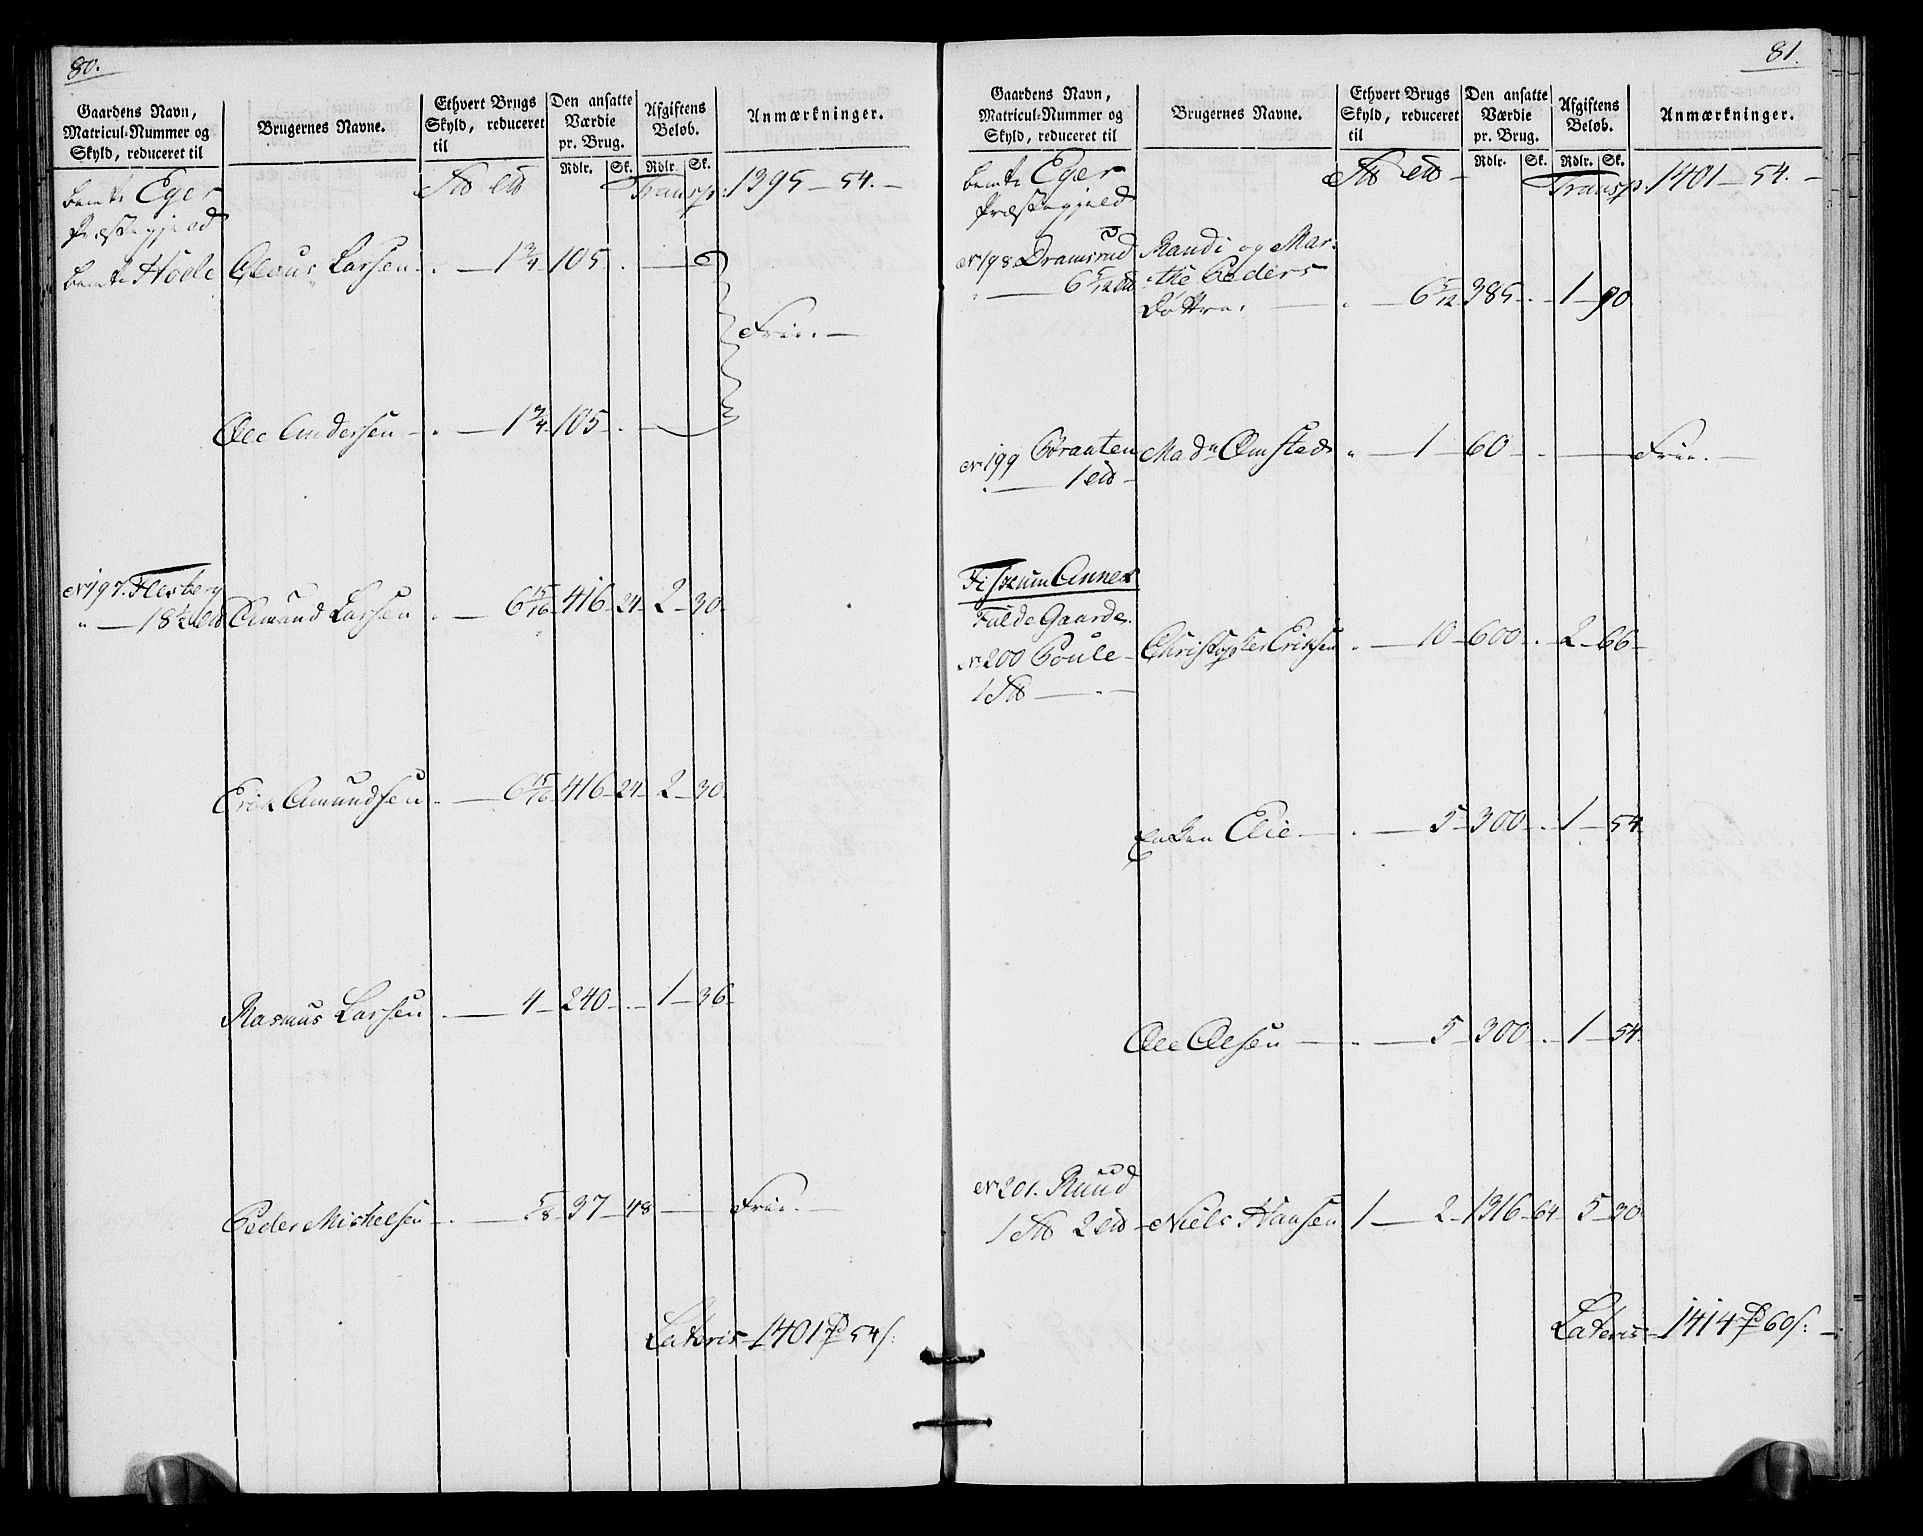 80.
Gaardens Navn, Matricul-Nummer og Skyld, reduceret til
Brugernes Navne.
Ethvert Brugs Skyld, reduceret til
Den ansatte Værdie pr. Brug.
Afgiftens Beløb.
Anmærkninger.
Rdlr. Sk. Rdlr. Sk.
bemte Eger Transp. 1395 — 54. —
Præstegjeld
bemte Hoele Claus Larsen — . — 1 3/4 — 105 — . —
Frie. —
Ole Andersen — . — 1 3/4 — 105 — . —
No 197. Flesberg
" — 18 1/2 Amund Larsen . — 6 15/16 — 416 — 24 — 2 — 30 —
Erik Amundsen . — 6 15/16 — 416 — 24 — 2 — 30 —
Rasmus Larsen . — 4 — 240 — . — 1 — 36 —
Peder Michelsen — . — 5/8 — 37 — 48 — Frie. —
Lateris — 1401 54 s:
81.
Gaardens Navn, Matricul-Nummer og Skyld, reduceret til
Brugernes Navne.
Ethvert Brugs Skyld, reduceret til
Den ansatte Værdie pr. Brug.
Afgiftens Beløb.
Anmærkninger.
Rdlr. Sk. Rdlr. Sk.
bemte Eger Transp. 1401 — 54. —
Præstegjeld
No 198 Dramsrud Randi og Mar-
— 6 5/12 the Peders
Døttre. — . — 6 5/12 385 — . — 1 — 90
No 199 Mad. Omsted " — 1 — 60 — . — Frie. —
" — 1
Fiskum Annex
Fulde Gaarde.
No 200 Foule — Christopher Eriksen . — 10 — 600 — . — 2 — 66 —
1 — " —
Enken Elie — . — 5 — 300 — . — 1 — 54
Ole Olsen — . — 5 — 300 — . — 1 — 54
No 201. Ruud
1 2 — Niels Hansen 1 — 2 — 1316 — 64 — 5 — 30
Lateris — 1414 60 s: —